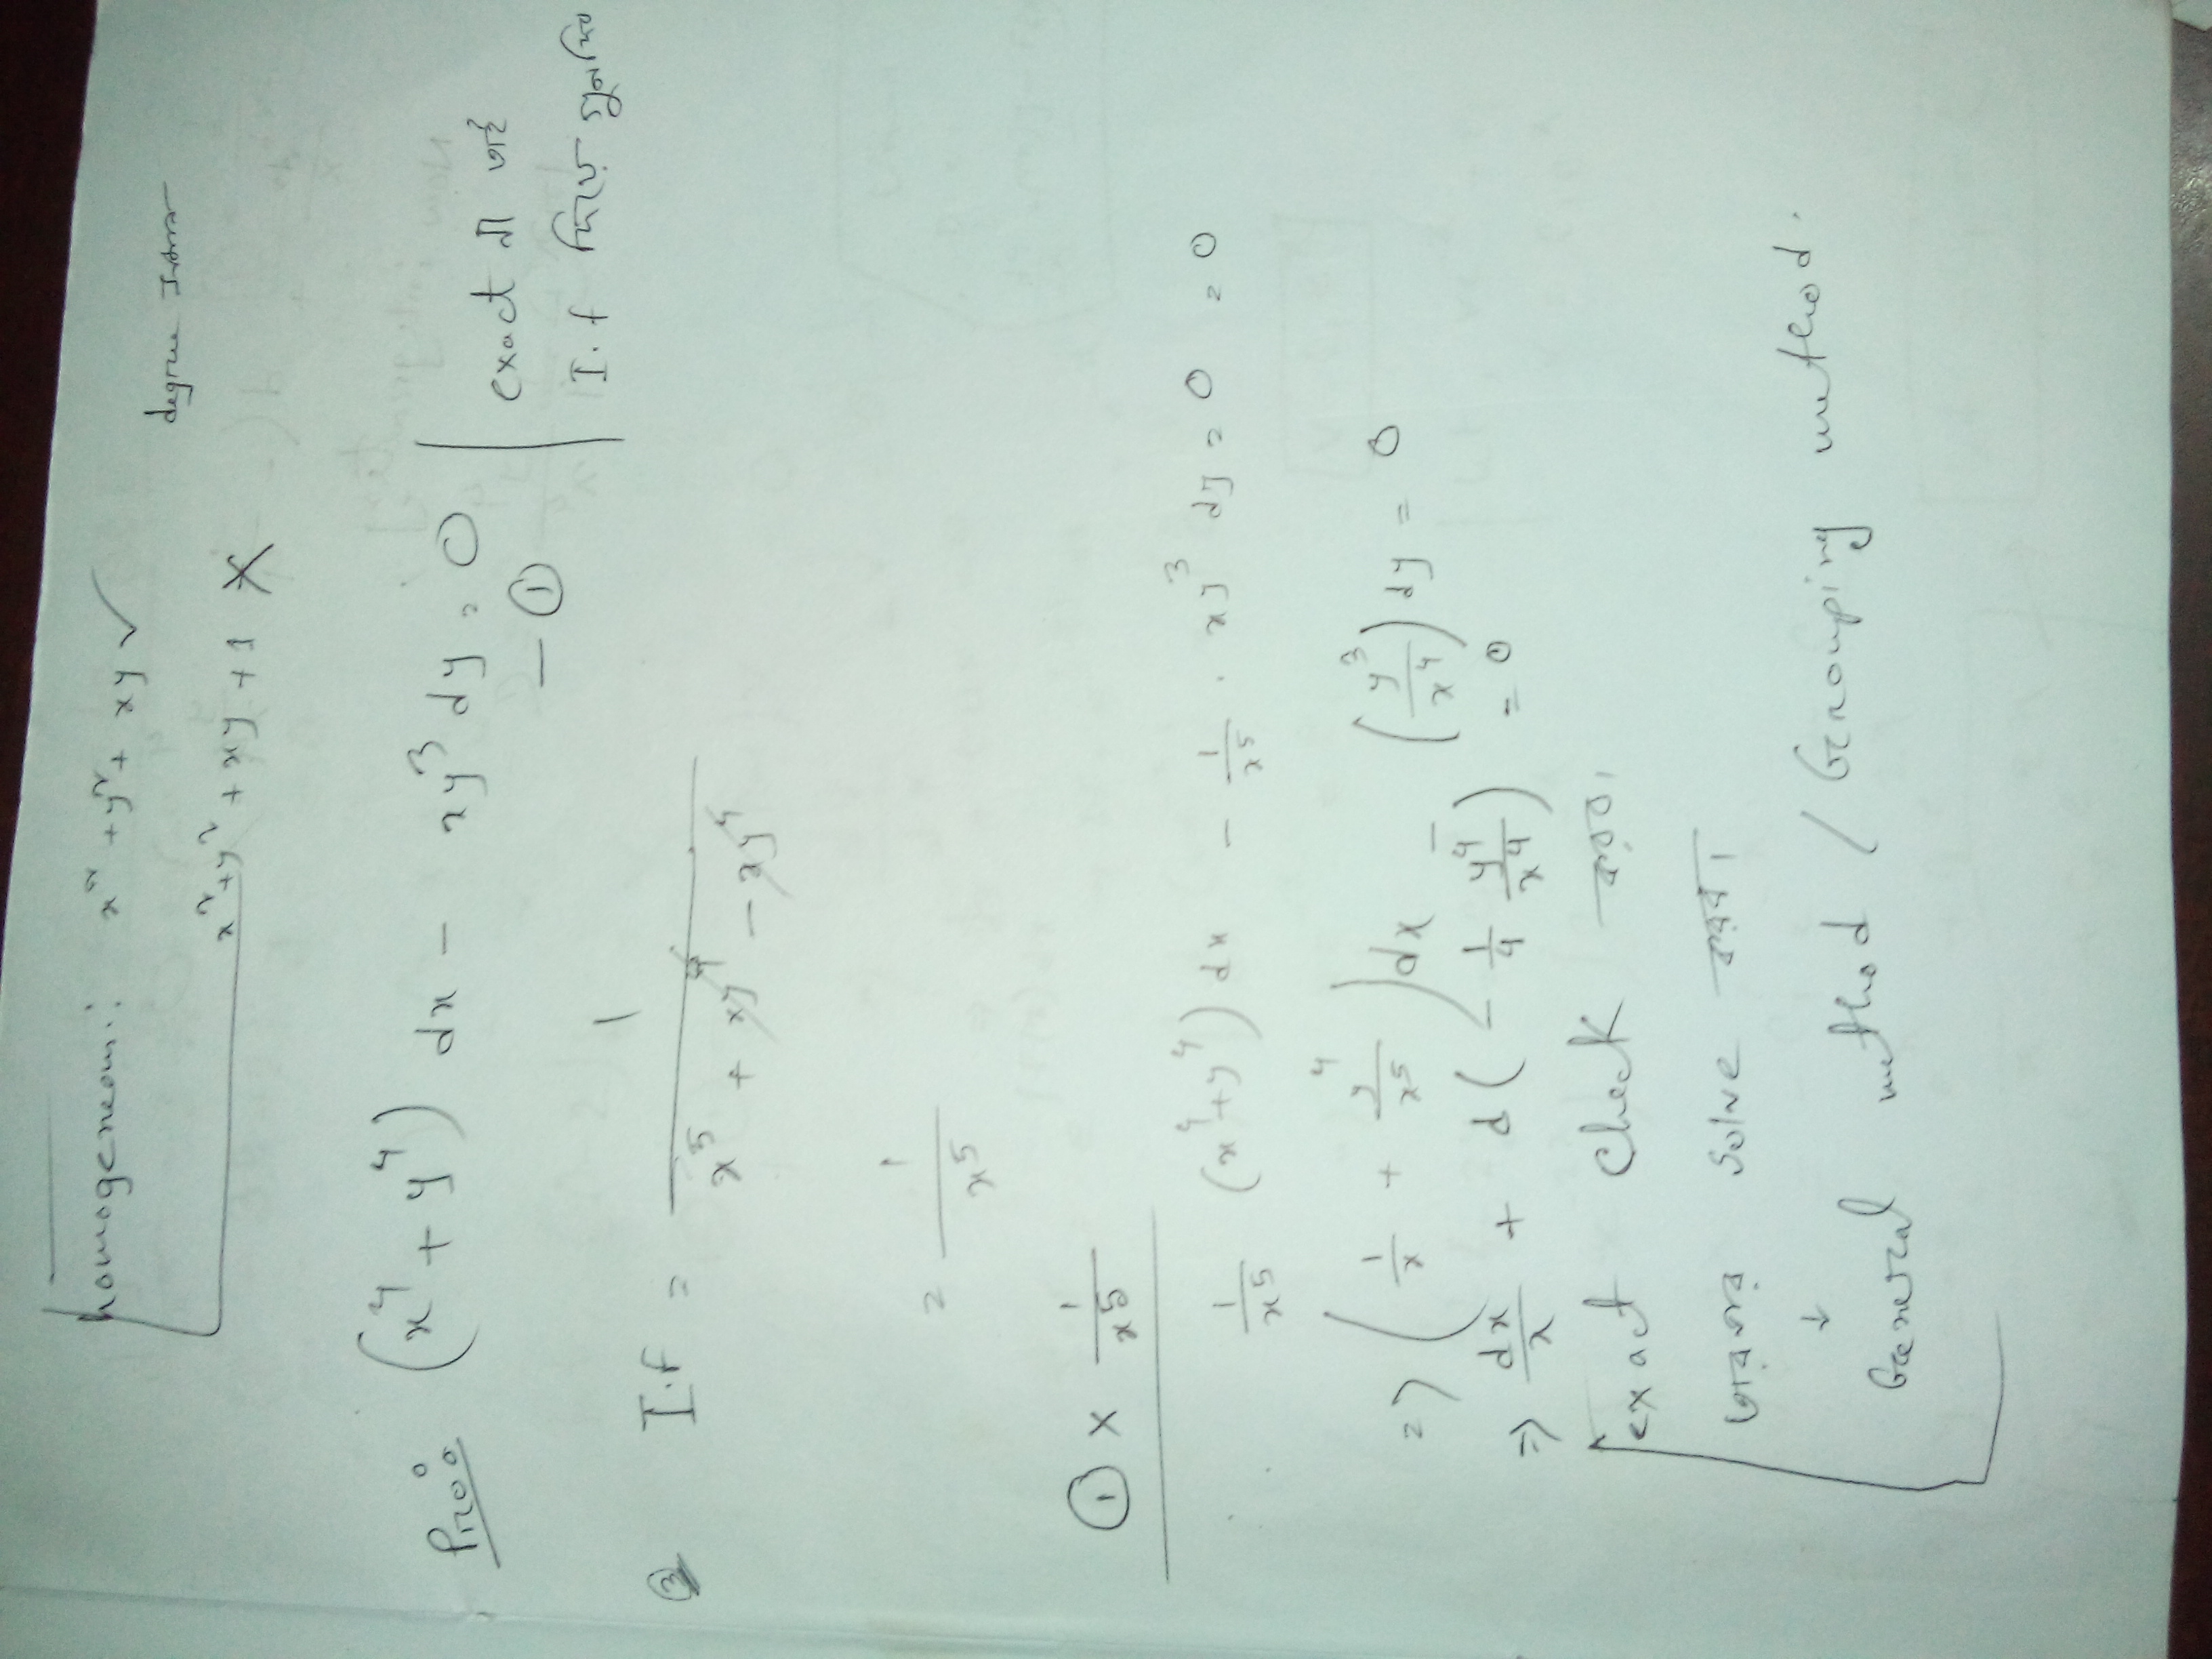 homogeneous: x² + y² + xy ✓
degree same
x² + y² + xy + 1 ✗
Prob: (x⁴ + y⁴) dx - xy³ dy = 0 — ①
exact না হই
I.f দিয়ে গুণ দিব
③ I.f = 1 / (x⁵ + xy⁴ - xy⁴)
= 1/x⁵
① × 1/x⁵
1/x⁵ (x⁴ + y⁴) dx - 1/x⁵ · xy³ dy = 0 = 0
=> (1/x + y⁴/x⁵) dx - (y³/x⁴) dy = 0
=> dx/x + d(- 1/4 y⁴/x⁴) = 0
exact check করব,
আবার solve করব।
↓
General method / Grouping method.